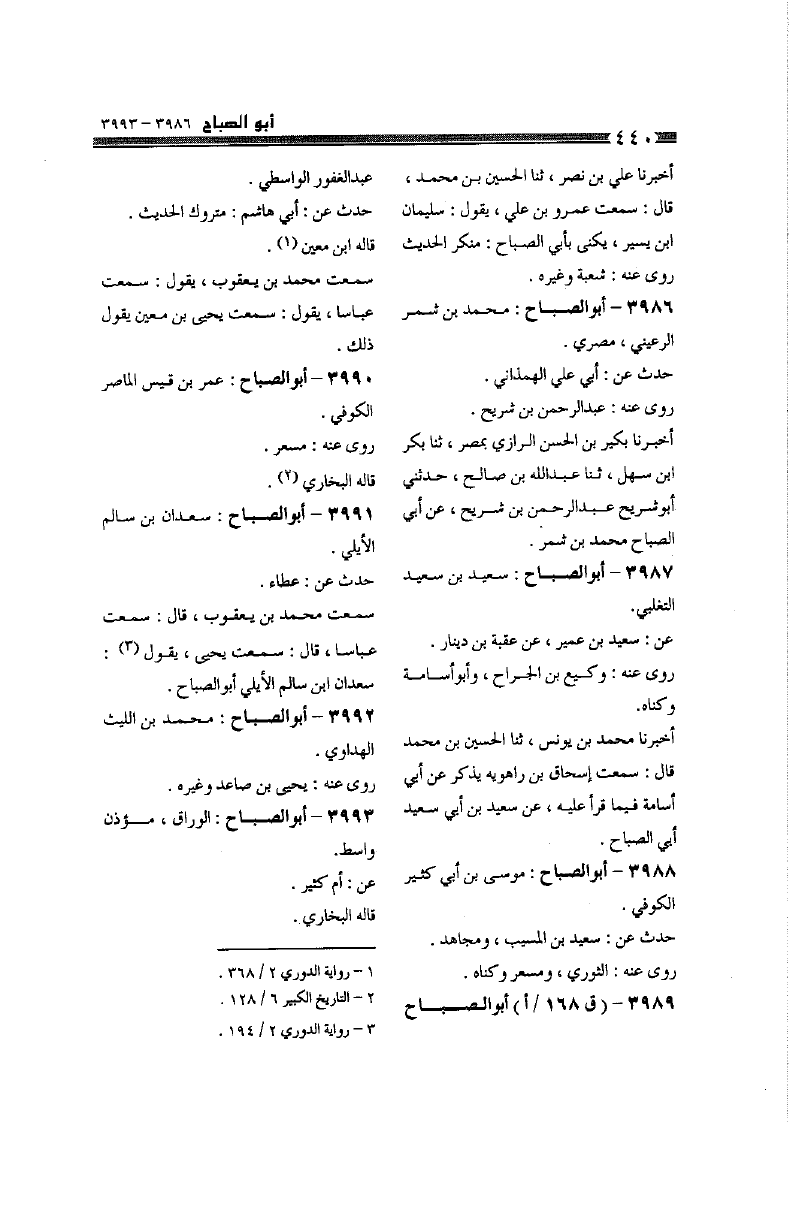 أبو الصباح ٣٩٨٦ – ٣٩٩٣
٤٤٠
أخبرنا علي بن نصر ، ثنا الحسين بن محمد ،
قال : سمعت عمرو بن علي ، يقول : سليمان
ابن يسير ، يكنى بأبي الصباح : منكر الحديث
روى عنه : شعبة وغيره .
٣٩٨٦ – أبوالصباح : محمد بن شمر
الرعيني ، مصري .
حدث عن : أبي علي الهمذاني .
روى عنه : عبدالرحمن بن شريح .
أخبرنا بكير بن الحسن الرازي بمصر ، ثنا بكر
ابن سهل ، ثنا عبدالله بن صالح ، حدثني
أبوشريح عبدالرحمن بن شريح ، عن أبي
الصباح محمد بن شمر .
٣٩٨٧ – أبوالصباح : سعيد بن سعيد
التغلبي.
عن : سعيد بن عمير ، عن عقبة بن دينار .
روى عنه : وكيع بن الجراح ، وأبوأسامة
وكناه.
أخبرنا محمد بن يونس ، ثنا الحسين بن محمد
قال : سمعت إسحاق بن راهويه يذكر عن أبي
أسامة فيما قرأ عليه ، عن سعيد بن أبي سعيد
أبي الصباح .
٣٩٨٨ – أبوالصباح : موسى بن أبي كثير
الكوفي .
حدث عن : سعيد بن المسيب ، ومجاهد .
روى عنه : الثوري ، ومسعر وكناه .
٣٩٨٩ – ( ق ١٦٨ / أ ) أبوالصباح
عبدالغفور الواسطي .
حدث عن : أبي هاشم : متروك الحديث .
قاله ابن معين (١) .
سمعت محمد بن يعقوب ، يقول : سمعت
عباسا ، يقول : سمعت يحيى بن معين يقول
ذلك .
٣٩٩٠ – أبوالصباح : عمر بن قيس الماصر
الكوفي .
روى عنه : مسعر .
قاله البخاري (٢) .
٣٩٩١ – أبوالصباح : سعدان بن سالم
الأيلي .
حدث عن : عطاء .
سمعت محمد بن يعقوب ، قال : سمعت
عباسا ، قال : سمعت يحيى ، يقول (٣) :
سعدان ابن سالم الأيلي أبوالصباح .
٣٩٩٢ – أبوالصباح : محمد بن الليث
الهداوي .
روى عنه : يحيى بن صاعد وغيره .
٣٩٩٣ – أبوالصباح : الوراق ، مؤذن
واسط.
عن : أم كثير .
قاله البخاري .
١ – رواية الدوري ٢ / ٣٦٨ .
٢ – التاريخ الكبير ٦ / ١٢٨ .
٣ – رواية الدوري ٢ / ١٩٤ .